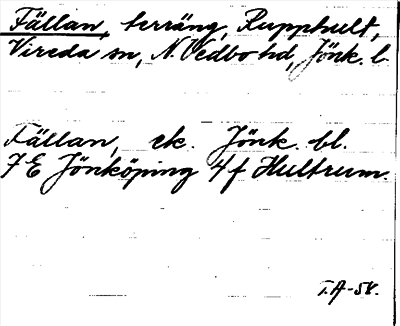 Fällan, terräng, Rupphult,
Vireda sn, N. Vedbo hd, Jönk. l.
Fällan, ek. Jönk. bl.
7 E Jönköping 4 f Hultrum.
T.A-58.